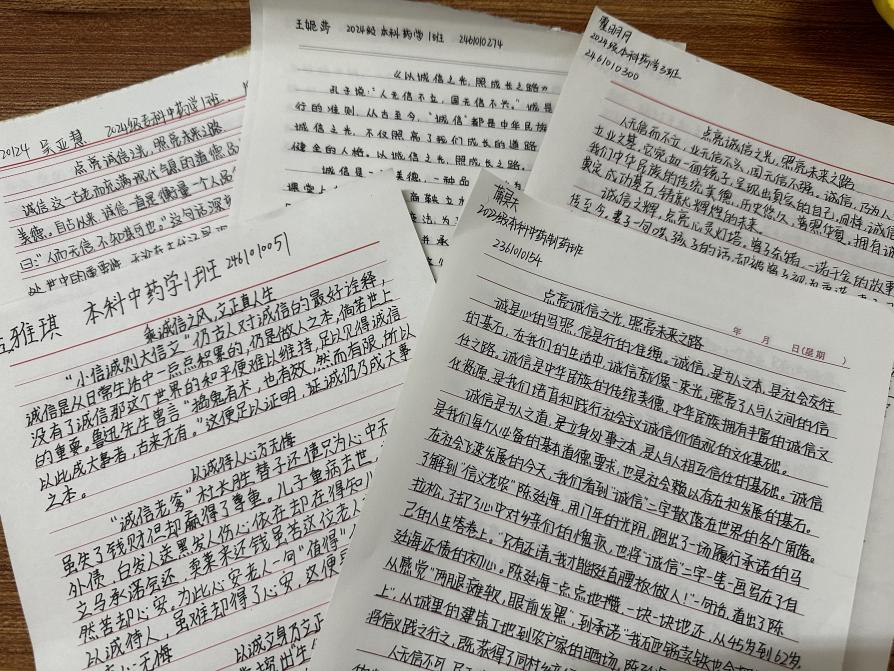 吴亚慧 2024级专科中药学1班
点亮诚信之光,照亮未来之路
诚信这一古老而充满现代气息的道德品
美德。自古以来,诚信一直是衡量一个人品
曰:“人而无信,不知其可也。”这句话深
王妮 2024级本科药学1班 2461010274
《以诚信之光,照成长之路》
孔子说:“人无信不立,国无信不兴。”诚是
行的准则,从古至今,“诚信”都是中华民族
诚信之光,不仅照亮了我们成长的道路
健全的人格。以诚信之光,照成长之路。
诚信是一 美德,一种品
课堂上
2024级本科药学3班
2461010300
点亮诚信之光,照亮未来之路
人无信而不立,业无信不兴,国无信不强。诚信,乃为人
立业之基。它宛如一面镜子,呈现出真实的自己,同样,诚信
我们中华民族的传统美德,历史悠久,普照华夏。拥有诚信
奠定成功基石,铸就辉煌的未来。
诚信之辉,点亮心灵灯塔。曾子杀猪,一诺千金的故事
传至今,妻子一句哄孩子的话,却被曾子视为承诺
雅琪 本科中药学1班 2461010051
乘诚信之风,立正真人生
“小信诚则大信立”仿古人对诚信的最好诠释,
诚信是从日常生活中一点点积累的,仍是做人之本,倘若世上
没有了诚信那这个世界的和平便难以维持,足以见得诚信
的重要。鲁迅先生曾言“捣鬼有术,也有效,然而有限,所以
以此成大事者,古来无有。”这便足以证明,证诚仍乃成大事
之本。
以诚待人,心方无悔
“诚信老爹”杜长胜替子还债只为心中无
虽失了钱财但却赢得了尊重。儿子重病去世,
外债,白发人送黑发人伤心依在却在得知儿
立马承诺
然苦却心安。为此心安老人一句“值得”
以诚待人,虽难却得了心安,这便
心无悔
以诚立身方立正
2023级本科中药制药班
2361010154
年 月 日(星期 )
点亮诚信之光,照亮未来之路
诚是心的马照,信是行的准绳。诚信,是为人之本,是社会交往
的基石。在我们的生活中,诚信就像一束光,照亮了人与人之间的信
任之路。诚信是中华民族的传统美德,中华民族拥有丰富的诚信文
化资源,是我们培育和践行社会主义诚信价值观的文化基础。
诚信是为人之道,是立身处事之本,是人与人相互信任的基础。诚信
是我们每个人必备的基本道德要求,也是社会赖以存在和发展的基石。
在社会飞速发展的今天,我们看到“诚信”二字散落在世界的各个角落。
了解到“信义老兵”陈廷海,用几年的光明,跑出了一场履行承诺的马
拉松,
己的人生答卷上。“只有还清,我才能挺直腰板做人!”一句话,道出了陈
廷海还债的初心。陈廷海一点点地攒,一块一块地还,从45岁到62岁
从感觉“两眼
上”,从城里的建筑工地到农户家的
将信义践之行之,既获得了同村乡
人无信不可